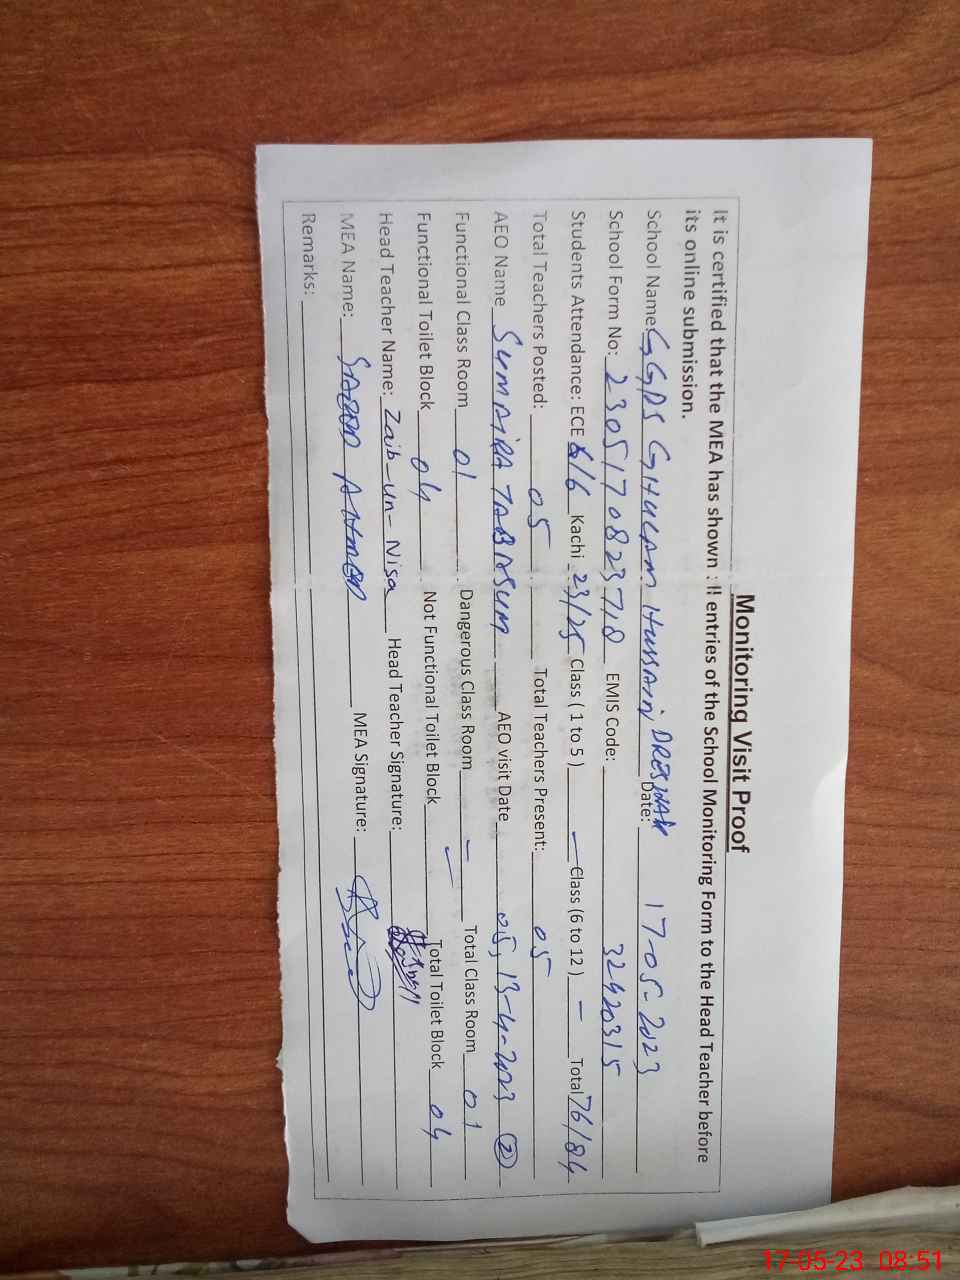 Monitoring Visit Proof
It is certified that the MEA has shown : ll entries of the School Monitoring Form to the Head Teacher before
its online submission.
School Name: GGPS GHULAM HUSSAIN DRESHAK Date: 17-05-2023
School Form No: 230517082378 EMIS Code: 32420315
Students Attendance: ECE 6/6 Kachi 23/25 Class ( 1 to 5 ) — Class (6 to 12 ) – Total 76/84
Total Teachers Posted: 05 Total Teachers Present: 05
AEO Name SUMAIRA TABASUM AEO visit Date 05, 13-4-2023 (2)
Functional Class Room 01 Dangerous Class Room – Total Class Room 01
Functional Toilet Block 04 Not Functional Toilet Block — Total Toilet Block 04
Head Teacher Name: Zaib-un-Nisa Head Teacher Signature:
MEA Name: AHMED MEA Signature:
Remarks:
17-05-23 08:51